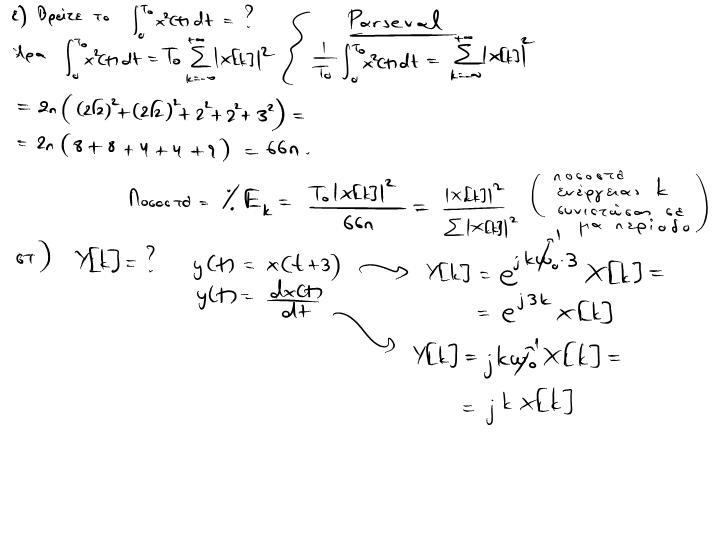 ε) Βρείτε το ∫₀^{T₀} x²(t) dt = ?
Parseval
Άρα ∫₀^{T₀} x²(t) dt = T₀ Σ_{k=-∞}^{+∞} |X[k]|² { 1/T₀ ∫₀^{T₀} x²(t) dt = Σ_{k=-∞}^{+∞} |X[k]|²
= 2π ( (2√2)² + (2√2)² + 2² + 2² + 3² ) =
= 2π ( 8 + 8 + 4 + 4 + 9 ) = 66π.
Ποσοστό = % E_k = T₀|X[k]|² / 66π = |X[k]|² / Σ|X[k]|² ( ποσοστό
ενέργειας k
συνιστώσας σε
μια περίοδο )
στ) Y[k] = ? y(t) = x(t+3) → Y[k] = e^{jkω₀·3} X[k] =
1
= e^{j3k} X[k]
y(t) = dx(t)/dt → Y[k] = jkω₀ X[k] =
1
= jk X[k]